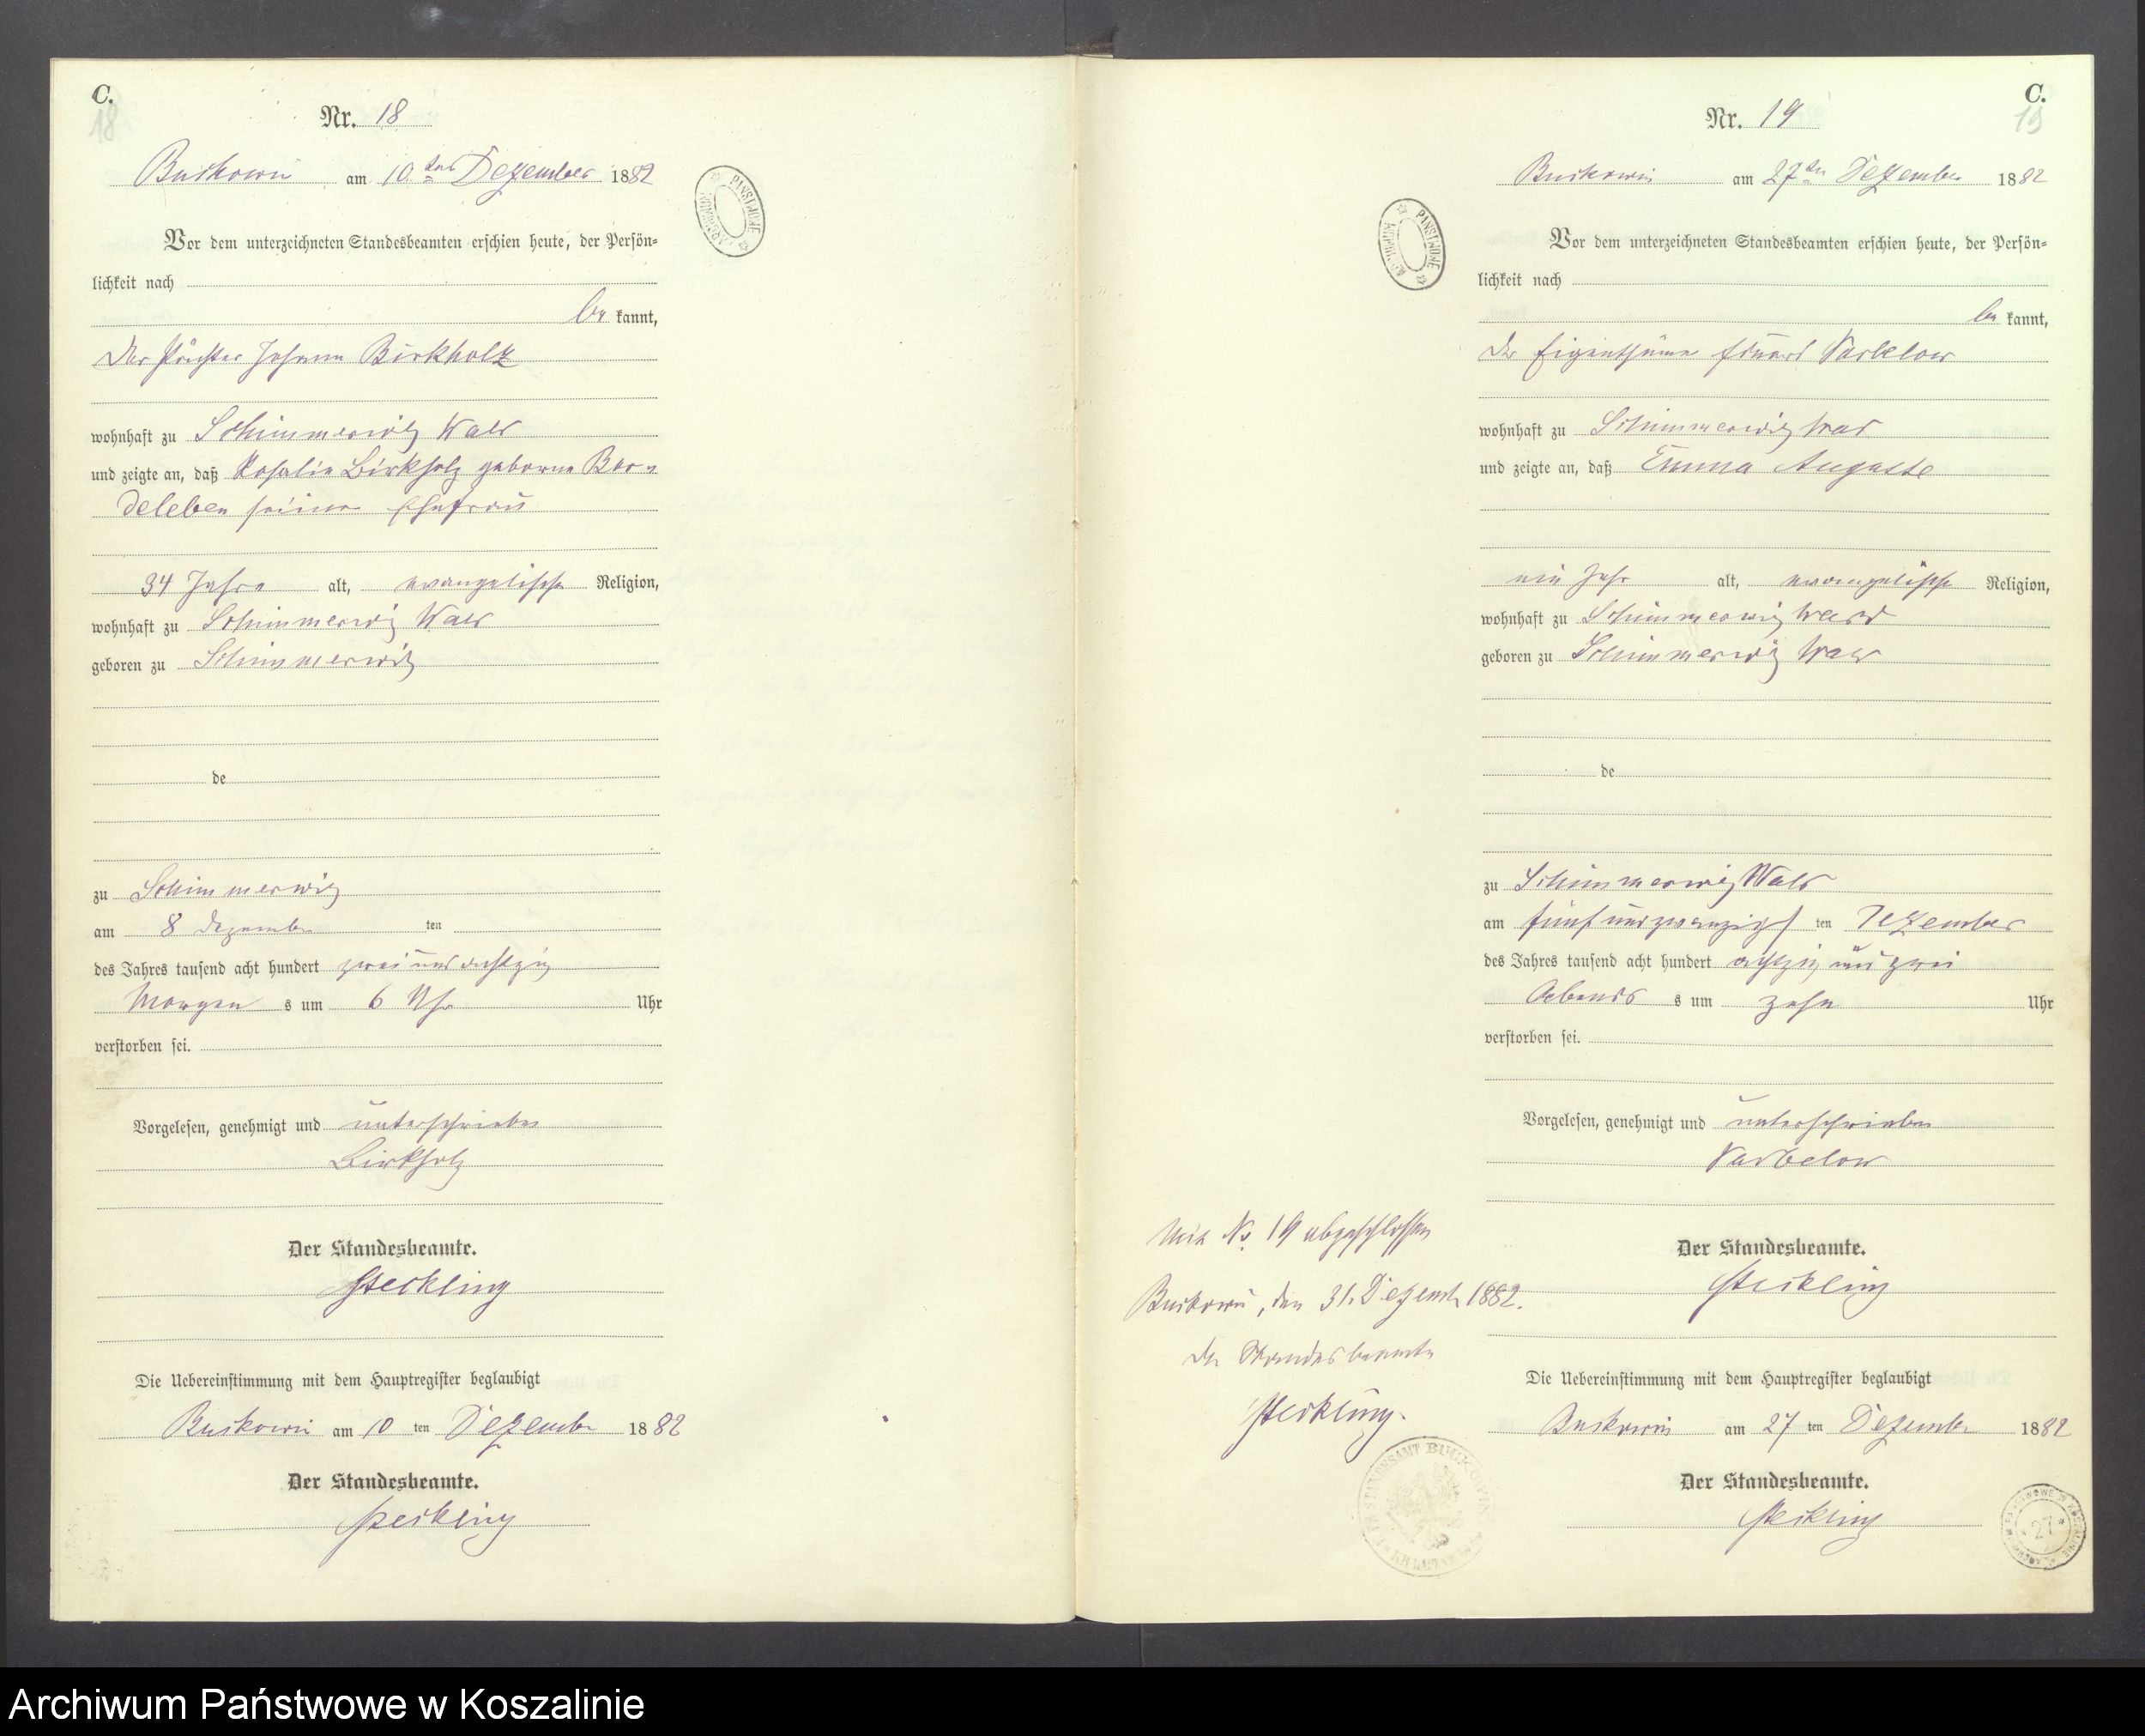 C.
18
Nr. 18
Buckowin am 10ten Dezember 1882
Vor dem unterzeichneten Standesbeamten erschien heute, der Persön-
lichkeit nach
be kannt,
der Pächter Johann Birkholz
wohnhaft zu Schimmerwitz Wald
und zeigte an, daß Rosalie Birkholz geborne Bar-
deleben seine Ehefrau
34 Jahre alt, evangelische Religion,
wohnhaft zu Schimmerwitz Wald
geboren zu Schimmerwitz
de
zu Schimmerwitz
am 8 Dezember ten
des Jahres tausend acht hundert zwei und achtzig
Morgen s um 6 Uhr Uhr
verstorben sei.
Vorgelesen, genehmigt und unterschrieben
Birkholz
Der Standesbeamte.
Steckling
Die Uebereinstimmung mit dem Hauptregister beglaubigt
Buckowin am 10 ten Dezember 1882
Der Standesbeamte.
Steckling
ARCHIWUM PAŃSTWOWE
C.
19
Nr. 19
Buckowin am 27ten Dezember 1882
Vor dem unterzeichneten Standesbeamten erschien heute, der Persön-
lichkeit nach
be kannt,
der Eigenthümer Eduard
wohnhaft zu Schimmerwitz Wald
und zeigte an, daß Emma Auguste
ein Jahr alt, evangelische Religion,
wohnhaft zu Schimmerwitz Wald
geboren zu Schimmerwitz Wald
de
zu Schimmerwitz Wald
am fünfundzwanzigs ten Dezember
des Jahres tausend acht hundert achtzig und zwei
Abends s um zehn Uhr
verstorben sei.
Vorgelesen, genehmigt und unterschrieben
Der Standesbeamte.
Steckling
Die Uebereinstimmung mit dem Hauptregister beglaubigt
Buckowin am 27 ten Dezember 1882
Der Standesbeamte.
Steckling
ARCHIWUM PAŃSTWOWE
Mit No 19 abgeschlossen
Buckowin, den 31. Dezemb 1882.
Der Standesbeamte
Steckling.
27
Archiwum Państwowe w Koszalinie